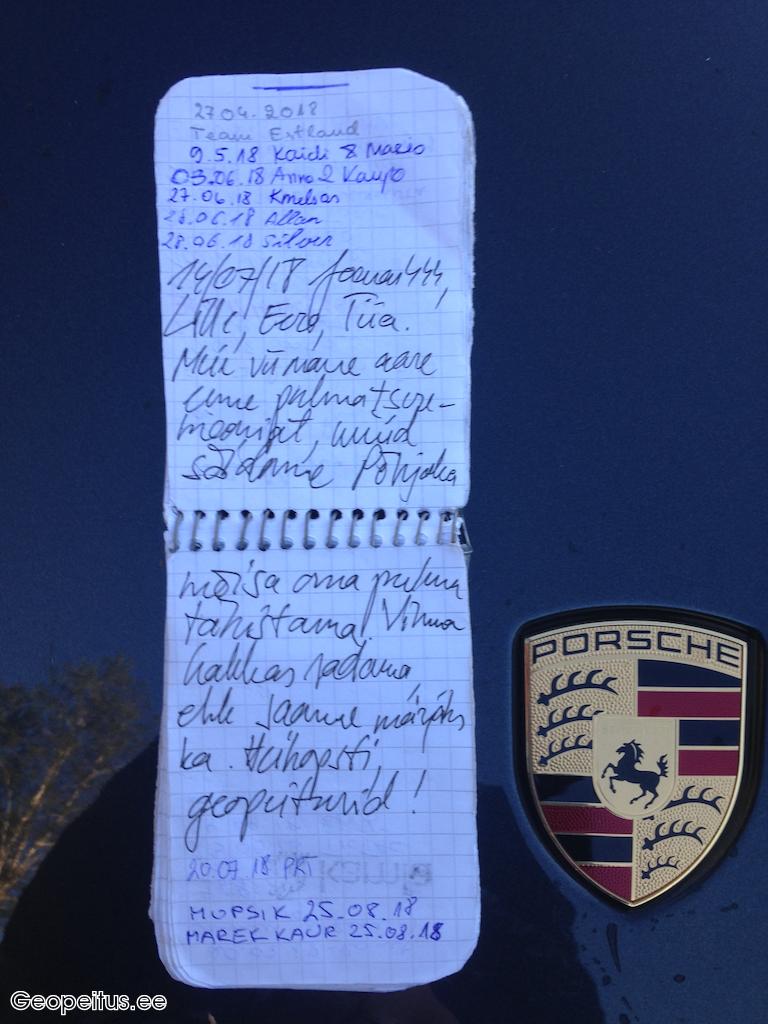 27.04.2018
Team Estland
9.5.18 Kaidi & Mario
03.06.18 Anna & Kaupo
27.06.18 Kmelsas
28.06.18 Allan
28.06.18 Silver
14/07/18
Lille, Eero, Tiia.
Meie viimane aare
enne pulmatsere-
mooniat, nüüd
sõidame Põhjaka
mõisa oma pulma
tähistama. Vihma
hakkas sadama,
ehk saame märjaks
ka. Hüngesti,
geopeiturid!
20.07.18 PRT
MOPSIK 25.08.18
MAREK KAUR 25.08.18
PORSCHE
Geopeitus.ee